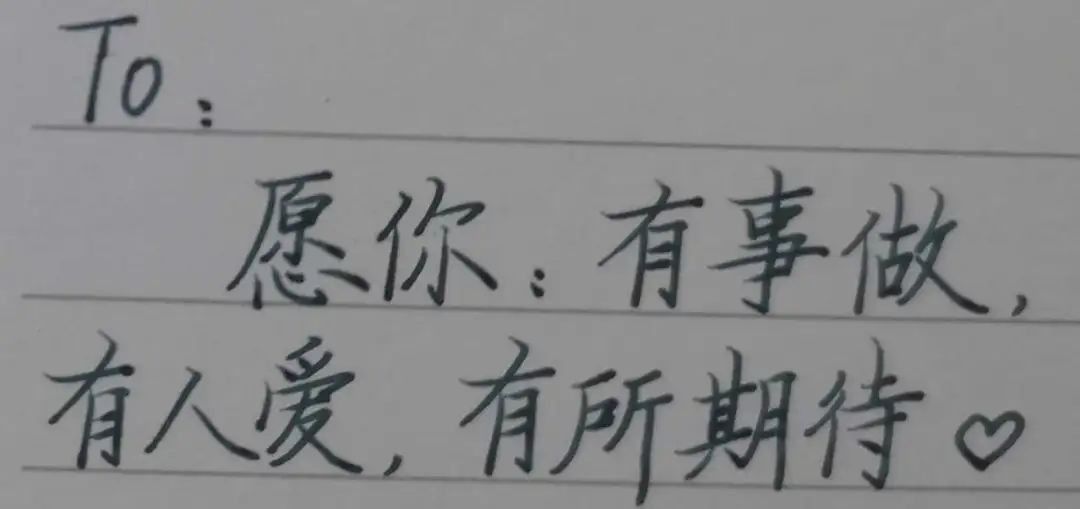 To：
愿你：有事做，
有人爱，有所期待♡